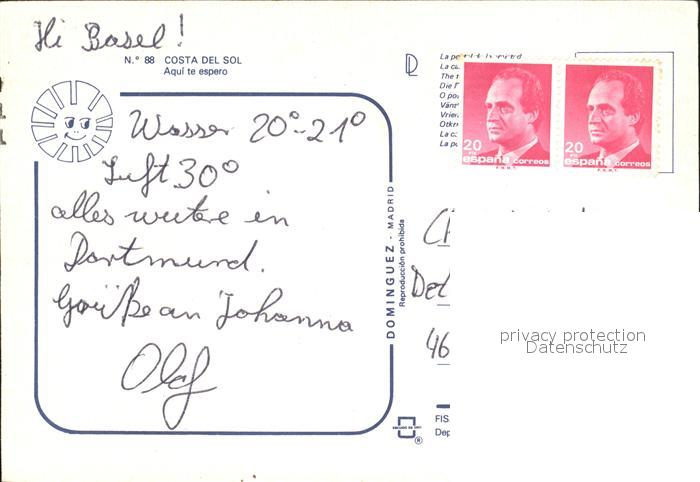 Hi Basel!
N.º 88 COSTA DEL SOL
Aquí te espero
Wasser 20°-21°
Luft 30°
alles weitere in
Dortmund.
Grüße an Johanna
Olaf
DOMINGUEZ - MADRID
Reproducción prohibida
La
La
The
Die
O
Vrien
La
La
20 PTS
españa correos
F.N.M.T.
20 PTS
españa correos
F.N.M.T.
46
privacy protection
Datenschutz
FIS
Dep
®